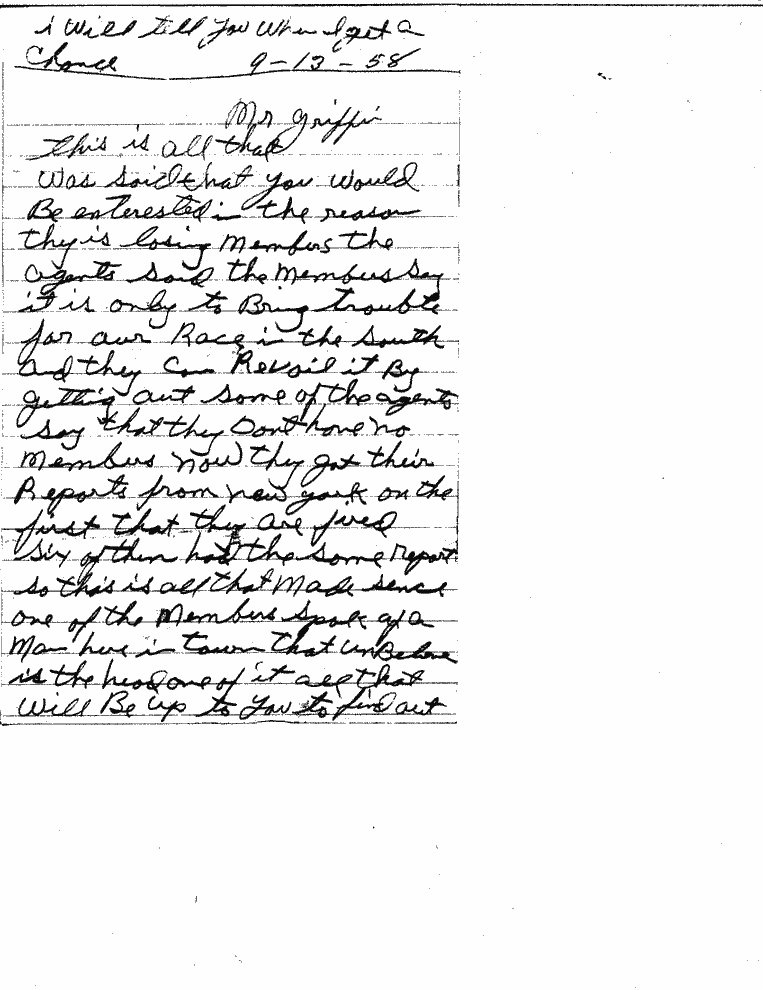 i will tell you when I get a
Chance 9-13-58
Mr Griffin
this is all that
was said that you would
Be enterested in the reason
they is losing members the
agents said the members say
it is only to Bring trouble
for our Race in the South
and they can Revail it By
getting out some of the agents
say that they Dont have no
members now they got their
Reports from new york on the
first that they are fired
six of them had the same report
so this is all that made sence
one of the members spoke of a
man here in town that
is the head one of it all that
will Be up to you to find out